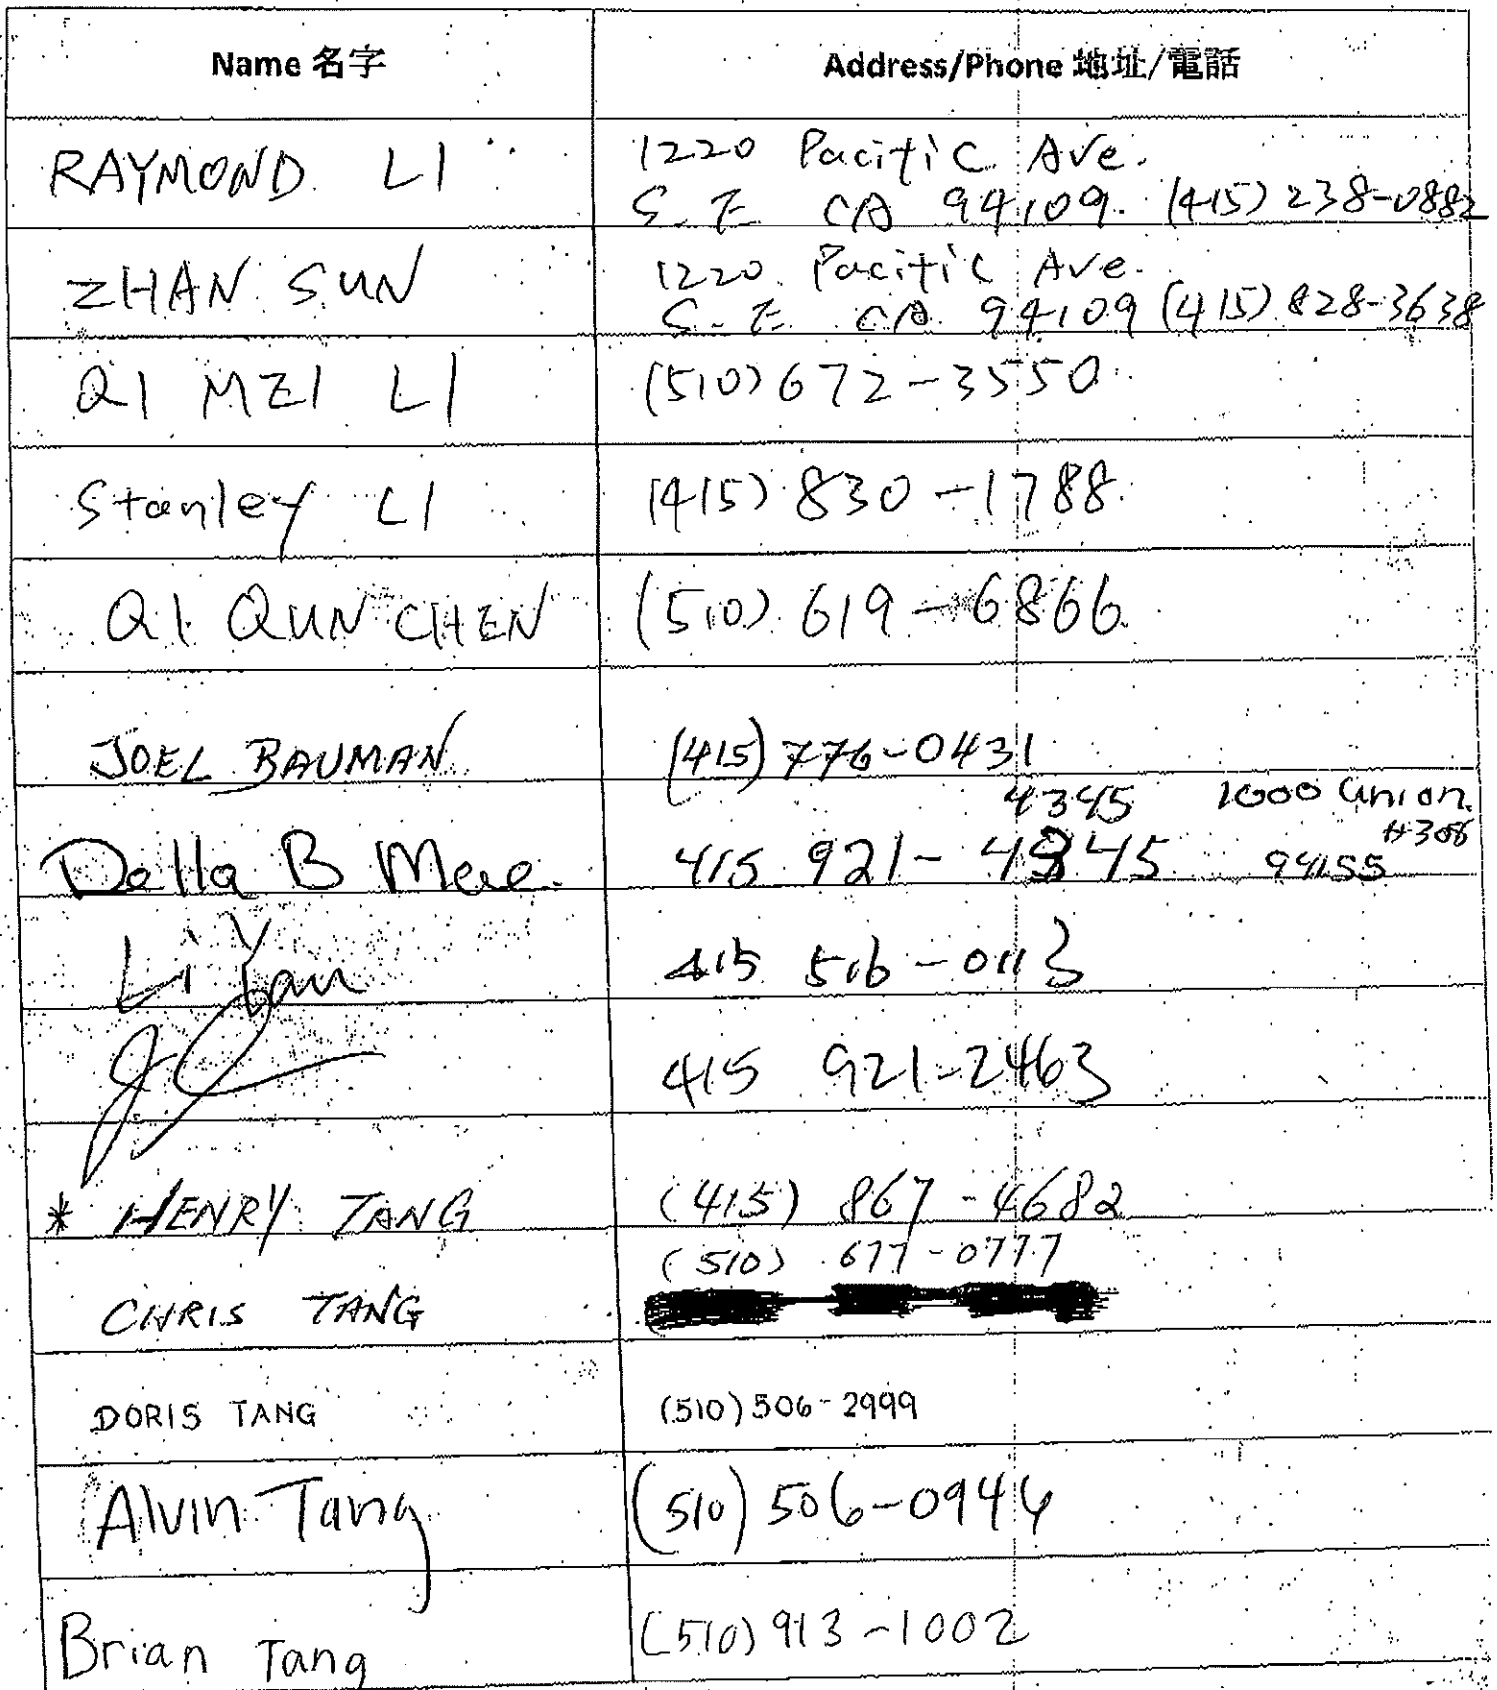 Name 名字
Address/Phone 地址/電話
RAYMOND LI
1220 Pacific Ave.
S.F. CA 94109. (415) 238-0882
ZHAN SUN
1220 Pacific Ave.
S.F. CA 94109 (415) 828-3638
QI MEI LI
(510) 672-3550
Stanley LI
(415) 830-1788
QI QUN CHEN
(510) 619-6866
JOEL BAUMAN
(415) 776-0431
4345 1000 Union
#306
Della B
415 921-4345
Li Yan
415 516-0113
415 921-2463
* HENRY TANG
(415) 867-4682
(510) 677-0777
CHRIS TANG
DORIS TANG
(510) 506-2999
Alvin Tang
(510) 506-0946
Brian Tang
(510) 913-1002